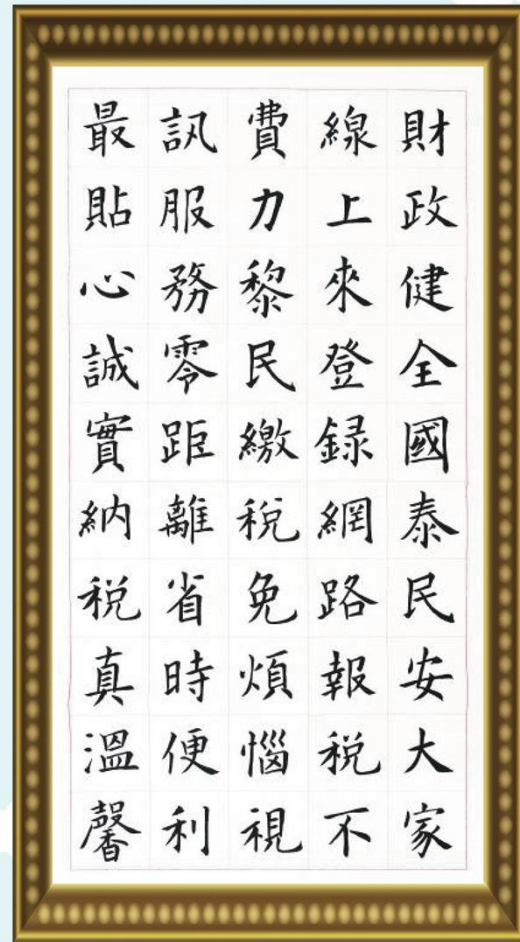 財政健全國泰民安大家
線上來登録網路報稅不
費力黎民繳稅免煩惱視
訊服務零距離省時便利
最貼心誠實納稅真溫馨